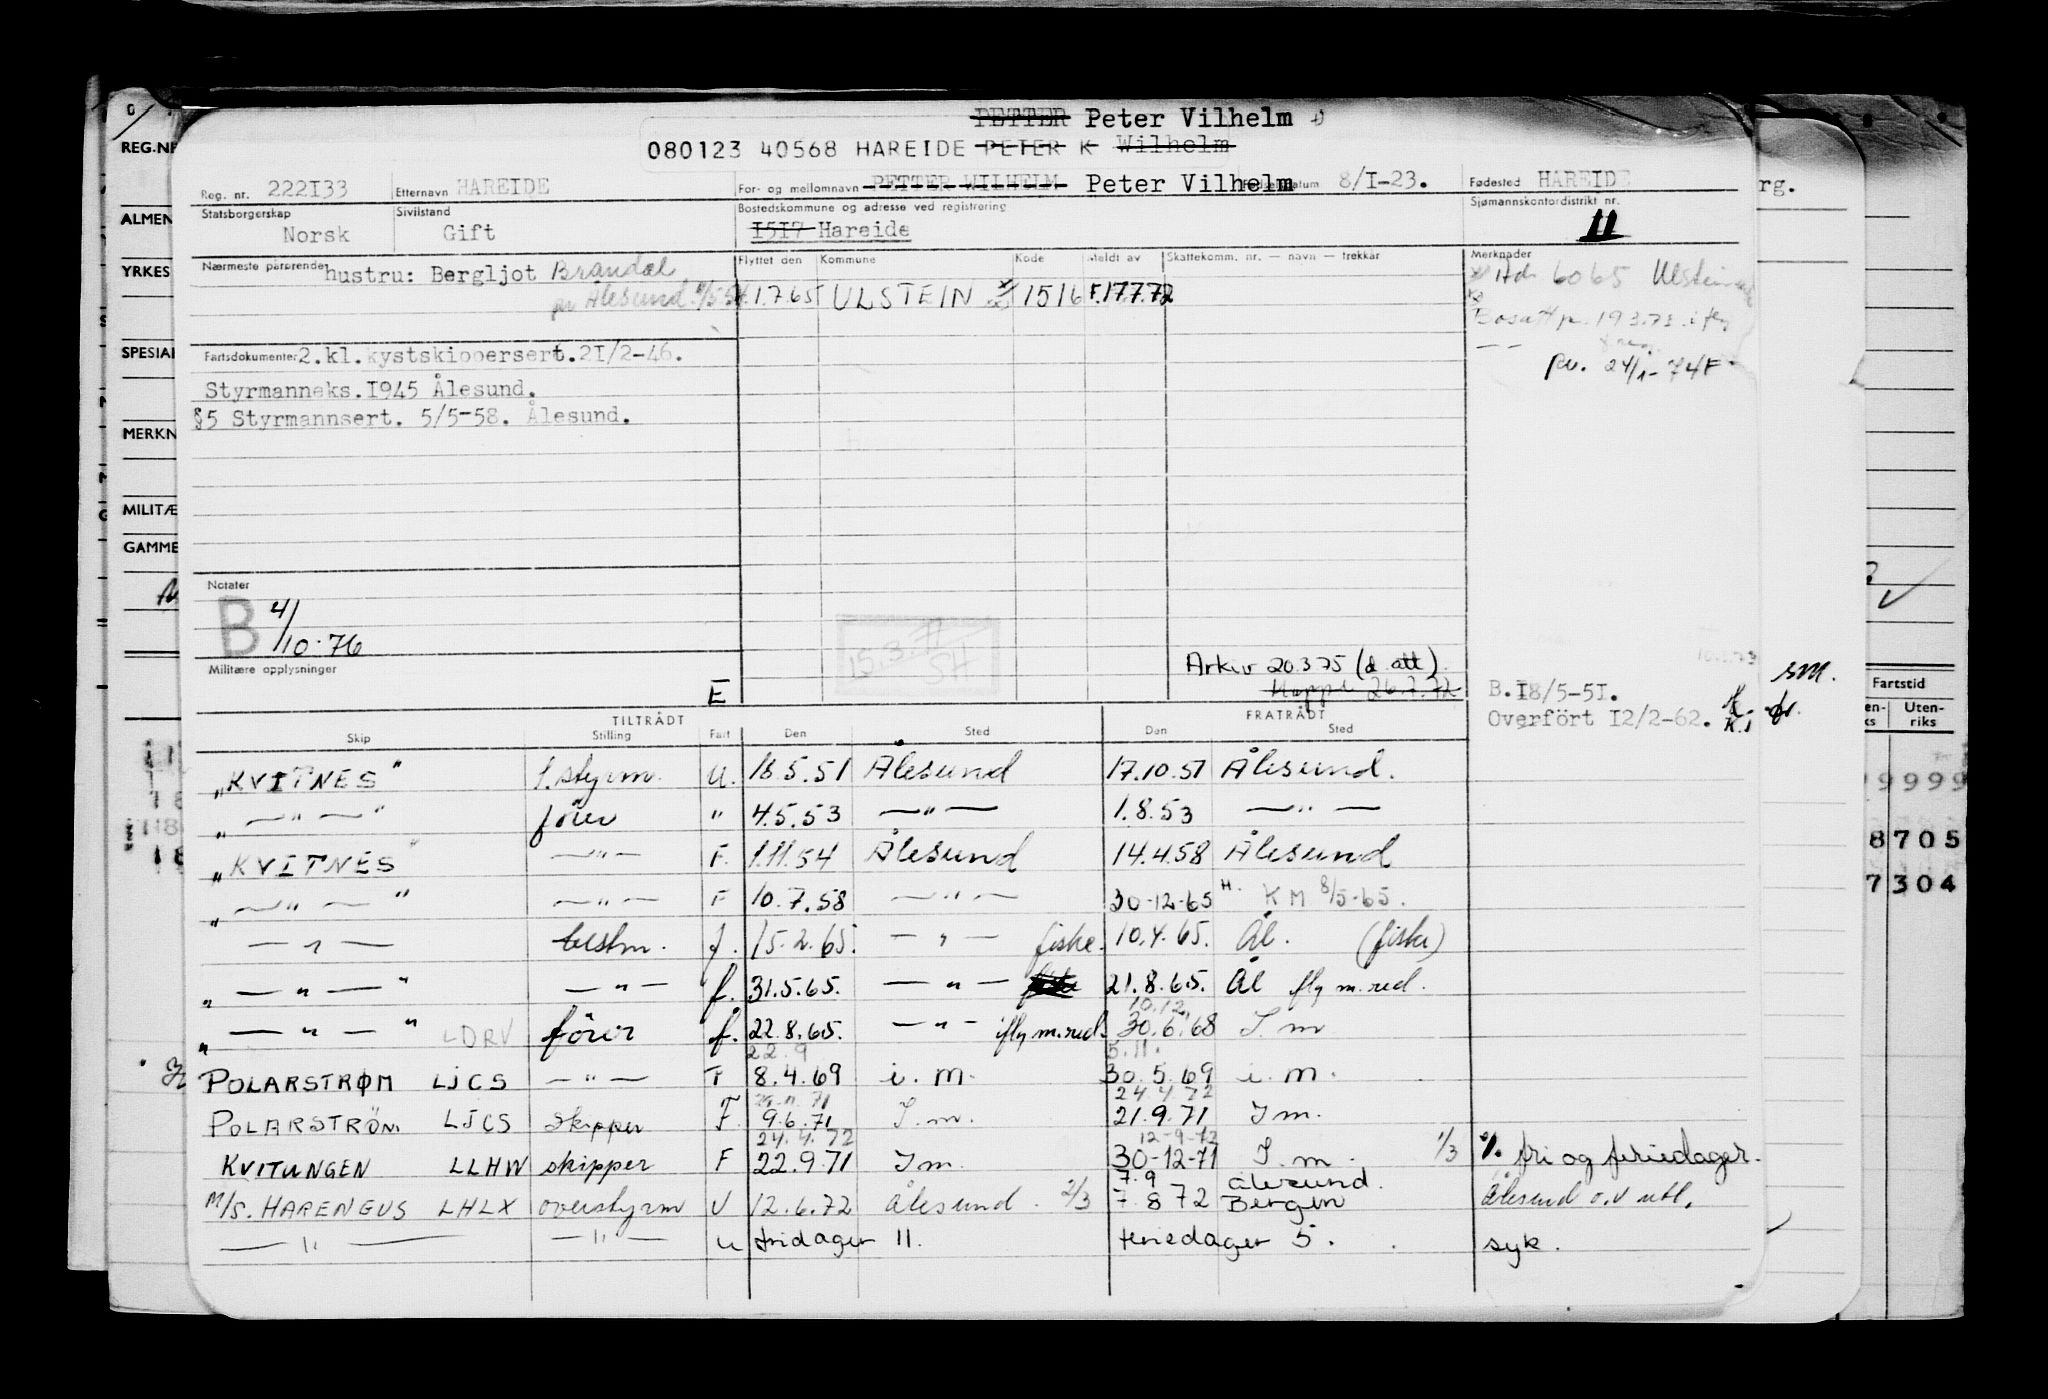 PETTER Peter Vilhelm
080123 40568 HAREIDE PETER K Wilhelm
Reg. nr. 222I33 Etternavn HAREIDE For- og mellomnavn PETTER WILHELM Peter Vilhelm Fødselsdatum 8/I-23. Fødested HAREIDE
Statsborgerskap Norsk Sivilstand Gift Bostedskommune og adresse ved registrering I5I7 Hareide Sjømannskontordistrikt nr. 11
Nærmeste pårørende hustru: Bergljot Brandal Flyttet den Kommune Kode Meldt av Skattekomm. nr. — navn — trekkår Merknader
Ålesund 1.7.65 ULSTEIN 1516 F.17.7.72 6065
Fartsdokumenter 2.kl.kystskippersert.2I/2-46.
Styrmanneks.I945 Ålesund. 24/1-74 F
§5 Styrmannsert. 5/5-58. Ålesund.
Notater
B 4/10-76
15.3.71 SH
Militære opplysninger
Arkiv 20.3.75 (d. att).
26.7.72 B.I8/5-5I.
E Overfört I2/2-62.
TILTRÅDT FRATRÅDT
Skip Stilling Fart Den Sted Den Sted
"KVITNES" 1. styrm. U. 18.5.51 Ålesund 17.10.51 Ålesund.
" — " — " fører " 4.5.53 — " — 1.8.53 — " —
"KVITNES" — " — F. 1.11.54 Ålesund 14.4.58 Ålesund
" — " — " — " — F 10.7.58 — " — 30-12-65 KM 8/5-65.
— " — bestm. f. 15.2.65. — " — fiske. 10.4.65. Ål. (fiske)
" — " — " — " — f. 31.5.65. — " — 21.8.65. Ål fly m.red.
10.12.
" — " — " LDRV fører f. 22.8.65. — " — ifly m.red. 30.6.68 I m
22.9 5.11.
POLARSTRØM LJCS — " — F 8.4.69 i. m. 30.5.69 i. m.
24.4.72
POLARSTRÖM LJCS skipper F 9.6.71 I. m. 21.9.71 I m.
24.4.72 12-9-72
KVITUNGEN LLHW skipper F 22.9.71 I m. 30-12-71 I. m. 1/3 %. fri og feriedager.
7.9 Ålesund.
M/S. HARENGUS LHLX overstyrm U 12.6.72 Ålesund. 2/3 7.8 72 Bergen Ålesund o.v utl.
— " — — " — u fridager 11. feriedager 5. syk.
REG.NR
ALMEN
YRKES
SPESIAL
MERKN
MILITÆ
GAMME
rg.
sm.
Fartstid
Uten-
riks
9999
8705
7304